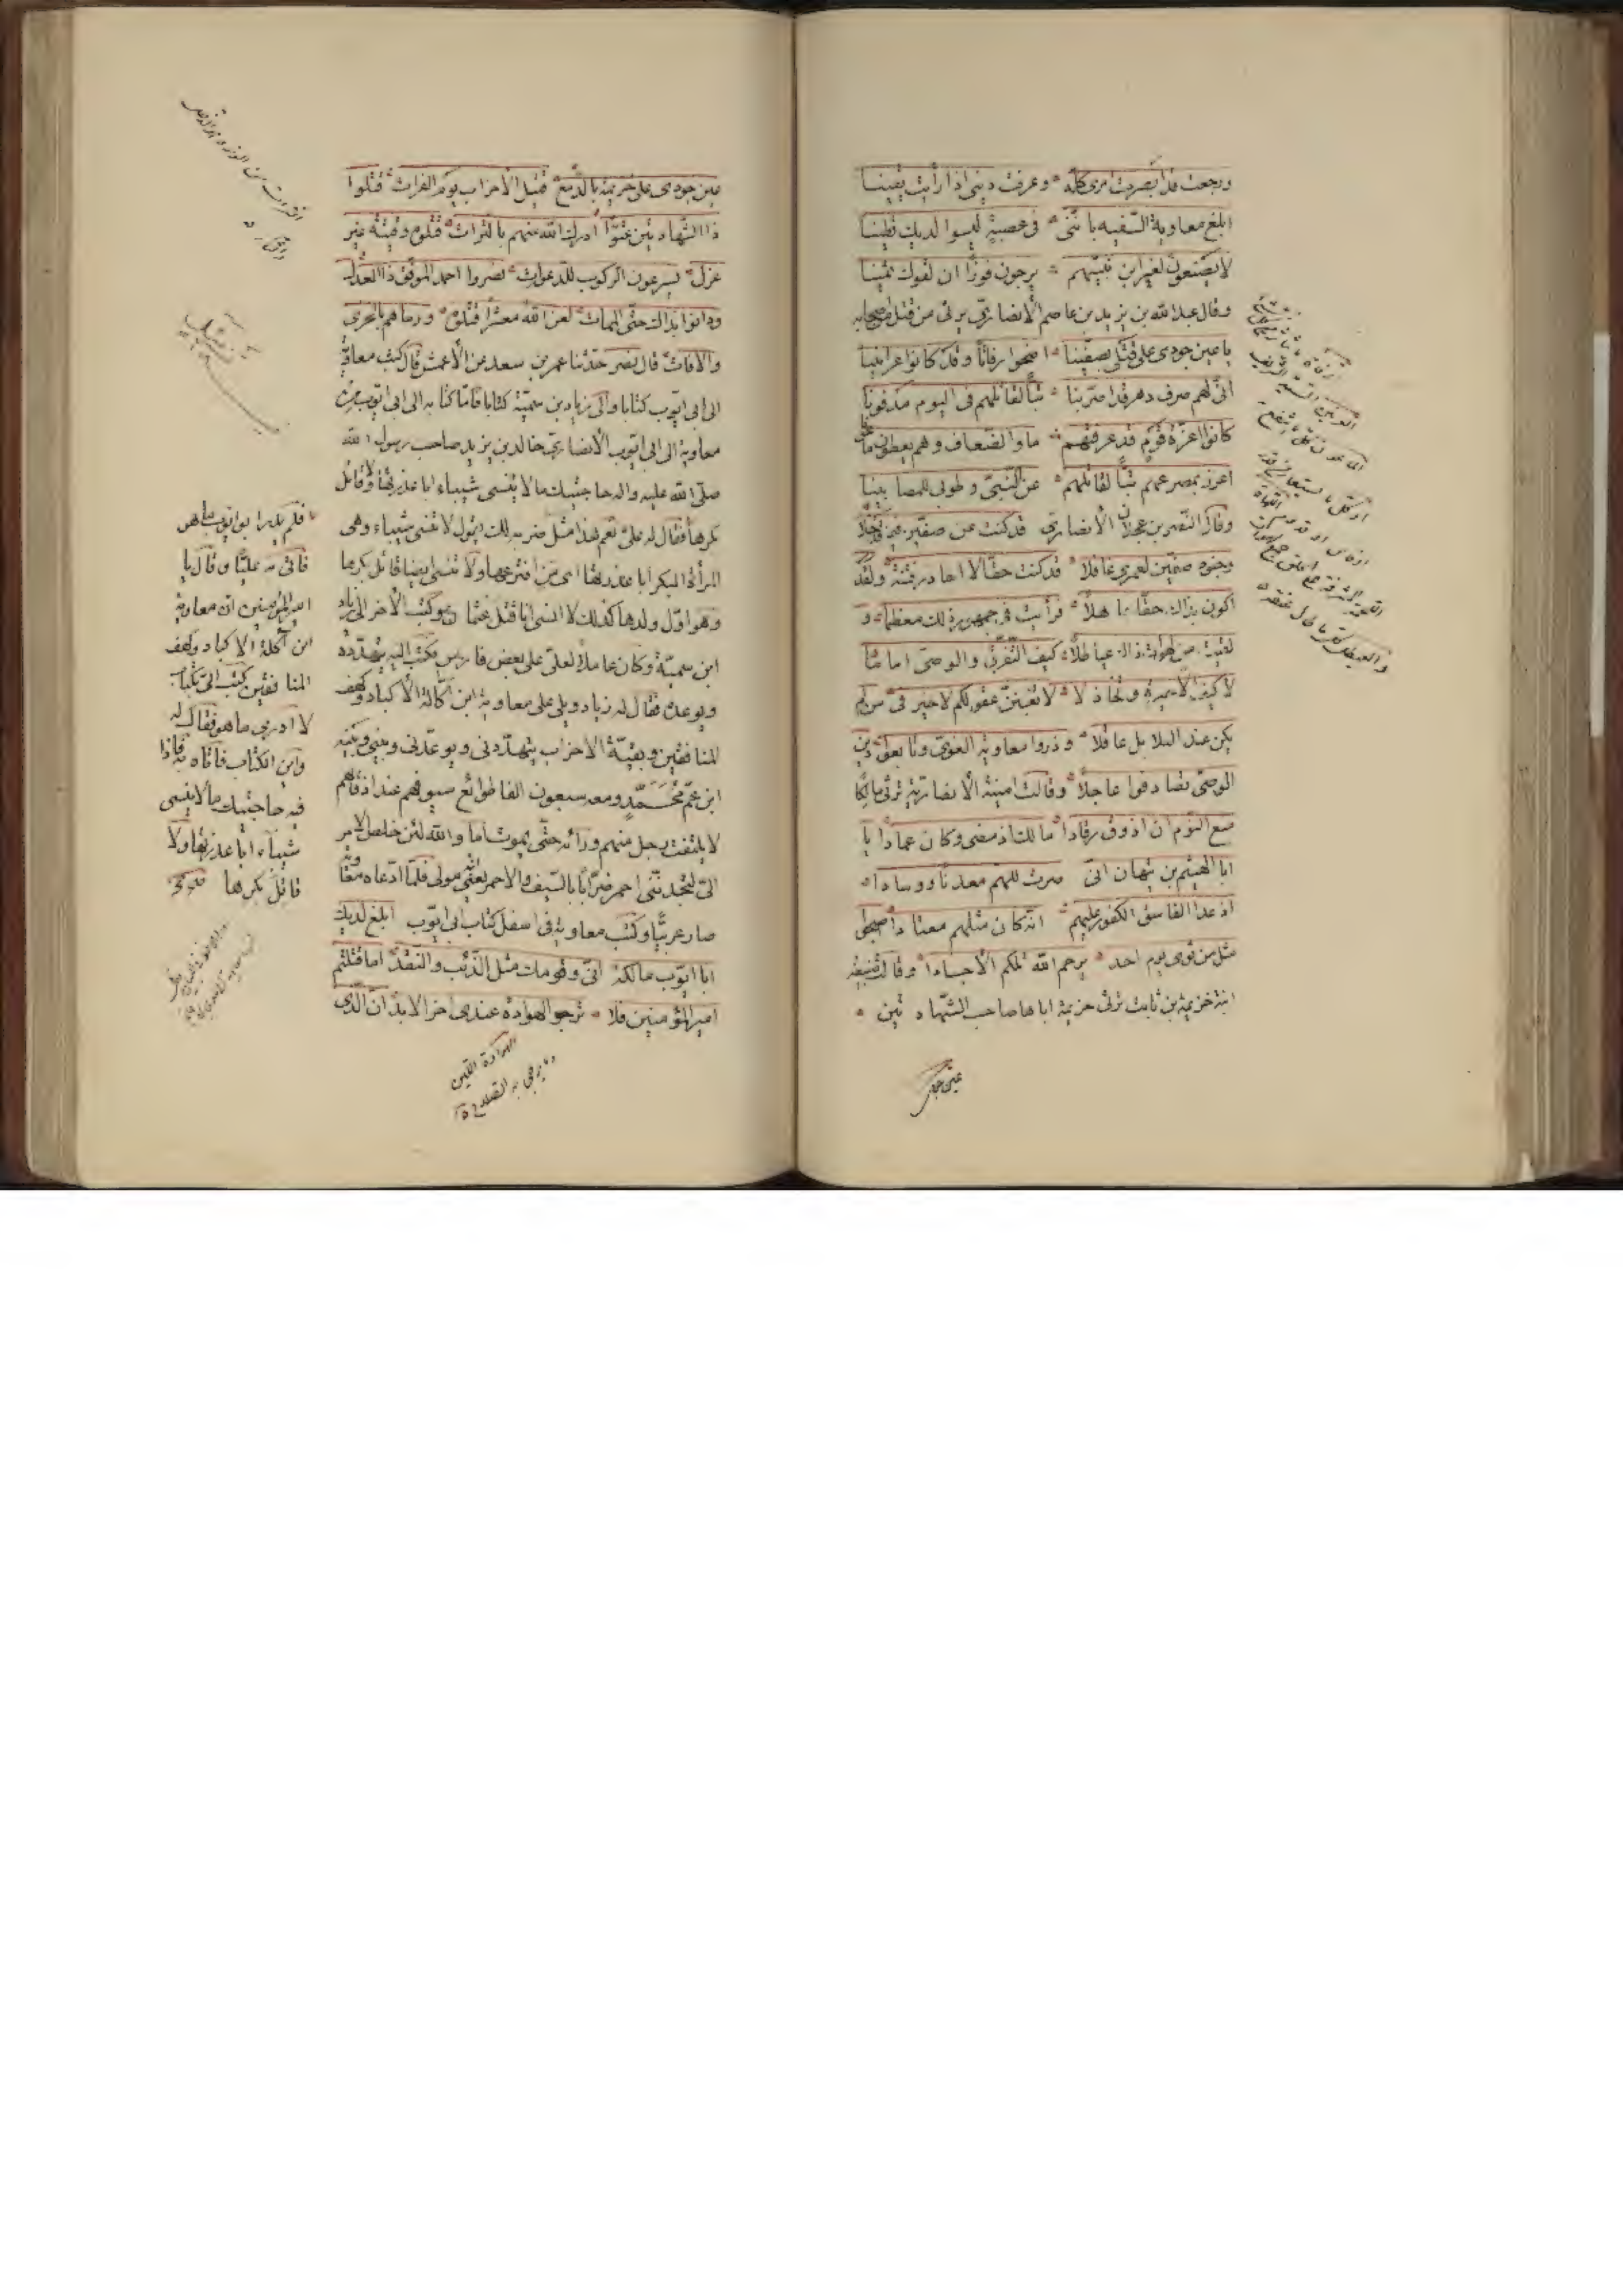 ورجعت قد ابصرت امرى كله وعرفت دينى اذ رأيت يقينا
ابلغ معاوية السفيه باننى فى عصبة ليسوا لديك قطينا
لا يصنعون لغير ابن نبيهم يرجون فوزا ان لقوك ثمينا
وقال عبد الله بن يزيد بن عاصم الأنصارى يرثى من قتل من اصحابه
يا عين جودى على قتلى بصفينا اضحوا رفاتا وقد كانوا عرانينا
انى لهم صرف دهر قد اضر بنا تبا لقاتلهم فى اليوم مدفونا
كانوا اعزة قوم قد عرفتهم ماوا الضعاف وهم يعطون ماعونا
اعزز بمصرعهم تبا لقاتلهم عن النبى وطوبى للمصابينا
وقال النضر بن عجلان الأنصارى قد كنت عن صفين فيما قد خلا
وجنود صفين لعمرى غافلا قد كنت حقا لا احاذر فتنة ولقد
اكون بذاك حقا جاهلا فرأيت فى جمهور ذلك معظما و
لقيت من لهوات ذاك عياطلا كيف التفرق والوصى امامنا
لا كيف الا حيرة وتخاذلا لا تغبنن عقولكم لا خير فى من لم
يكن عند البلابل عاقلا وذروا معاوية الغوى وتابعوا دين
الوصى تصادفوا عاجلا وقالت امينة الأنصارية ترثى مالكا
منع النوم ان اذوق رقادا مالك اذ مضى وكان عمادا يا
ابا الهيثم بن تيهان انى صرت للهم معدنا ووسادا
اذ غدا الفاسق الكفور عليهم انه كان مثلهم معتادا اصبحوا
مثل من ثوى يوم احد يرحم الله تلكم الأجسادا وقالت ضبيعة
ابنة خزيمة بن ثابت ترثى خزيمة اباها صاحب الشهادتين
عين جودى
عين جودى على خزيمة بالدمع قتيل الأحزاب يوم الفرات قتلوا
ذا الشهادتين عتوا ادرك الله منهم بالترات قتلوه فى فتية غير
عزل يسرعون الركوب للدعوات نصروا احمد الموفق ذا العدل
ودانوا بذاك حتى الممات لعن الله معشرا قتلوه ورماهم بالخزى
والآفات قال نصر حدثنا عمر بن سعد عن الأعمش قال كتب معاوية
الى ابى ايوب كتابا والى زياد بن سمية كتابا فاما كتابه الى ابى ايوب من
معاوية الى ابى ايوب الأنصارى خالد بن يزيد صاحب رسول الله
صلى الله عليه واله حاجيتك ما لا ينسى شيباء ابا عذرتها ولا قاتل
بكرها فقال له على نعم هذا مثل ضربه لك يقول لا تنسى شيباء وهى
المرأة البكر ابا عذرتها اى من افترعها ولا تنسى ايضا قاتل بكرها
وهو اول ولدها كذلك لا انسى انا قتل عثمان وكتب الآخر الى زياد
ابن سمية وكان عاملا لعلى على بعض فارس فكتب اليه يتهدده
ويوعده فقال له زياد ويلى على معاوية ابن اكالة الأكباد وكهف
المنافقين وبقية الأحزاب يتهددنى ويوعدنى وبينى وبينه
ابن عم محمد ومعه سبعون الفا طوائع سيوفهم عند اذقانهم
لا يلتفت رجل منهم ورائه حتى يموت اما والله لئن خلص الأمر
الى ليجدننى احمر ضرابا بالسيف والأحمر يعنى انه مولى فلما ادعاه معاوية
صار عربيا وكتب معاوية فى اسفل كتاب ابى ايوب ابلغ لديك
ابا ايوب مالكة انى وقومك مثل الذئب والنقد اما قتلتم
امير المؤمنين فلا ترجو الهوادة عندى آخر الأبد ان الذى
الهوادة اللين
وما يرجى به الصلاح
فلم يدر ابو ايوب ما هى
فاتى به عليا وقال يا
امير المؤمنين ان معاوية
ابن آكلة الأكباد وكهف
المنافقين كتب الى بكتاب
لا ادرى ما هو فقال له
واين الكتاب فاتاه به فاذا
فيه حاجيتك ما لا ينسى
شيباء ابا عذرتها ولا
قاتل بكرها